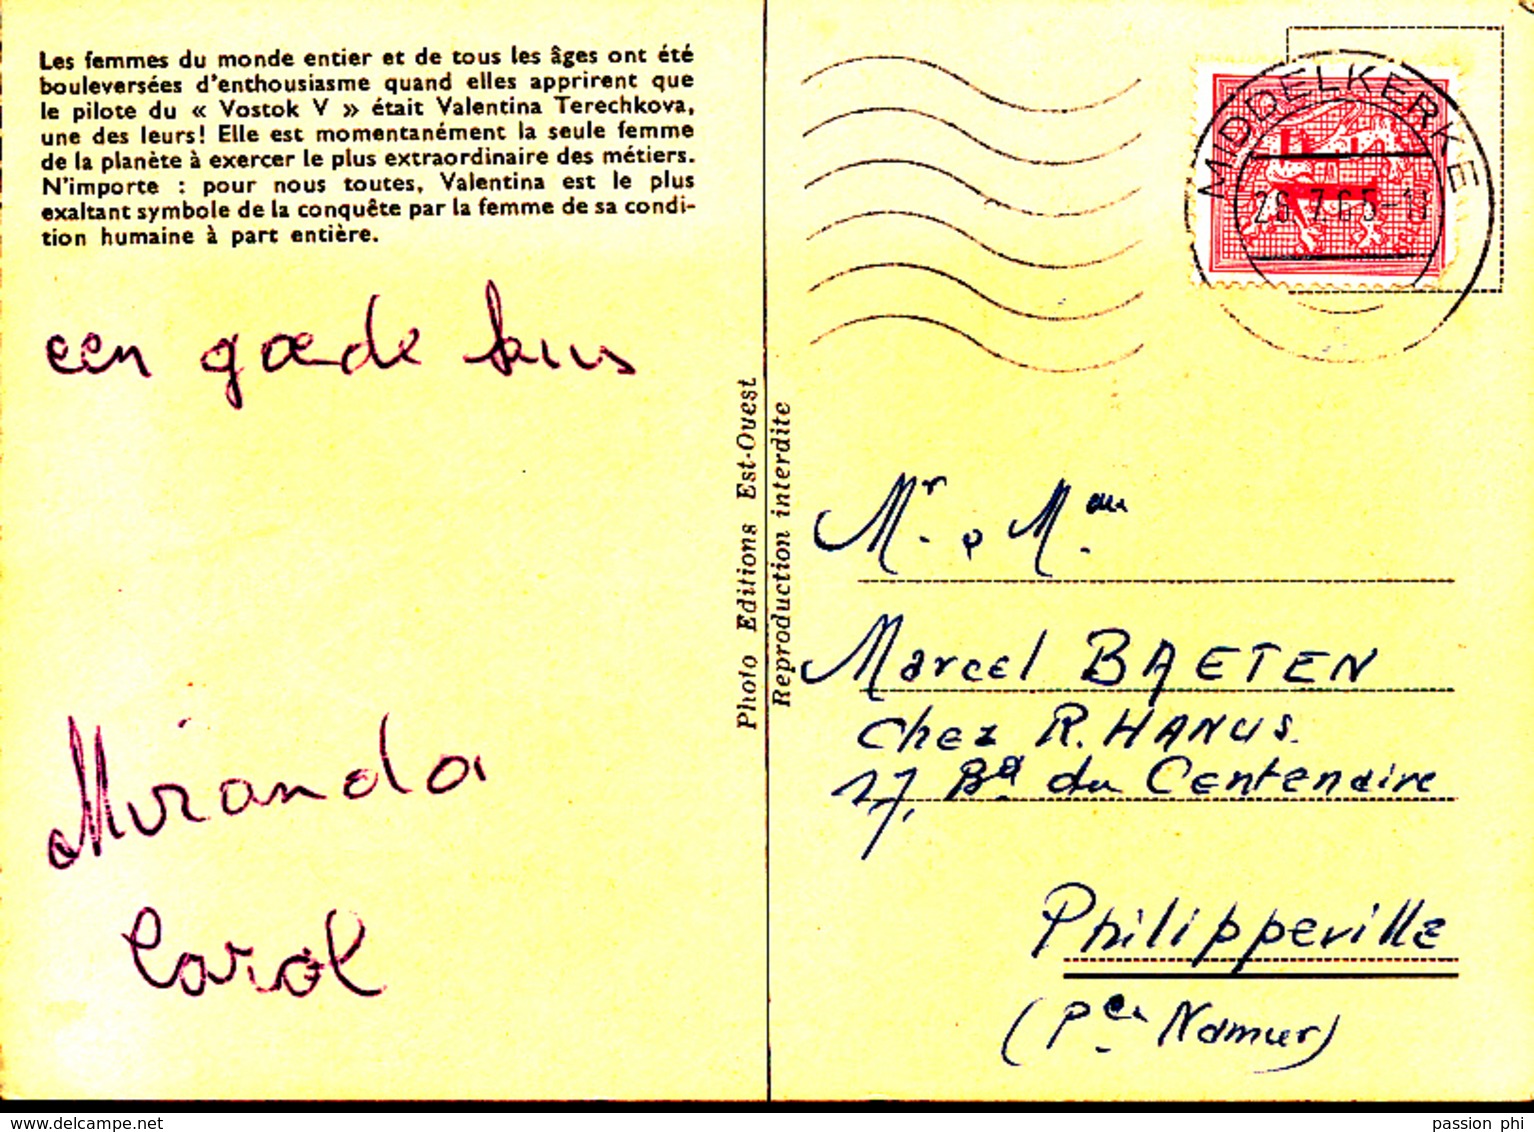 Les femmes du monde entier et de tous les âges ont été
bouleversées d'enthousiasme quand elles apprirent que
le pilote du « Vostok V » était Valentina Terechkova,
une des leurs! Elle est momentanément la seule femme
de la planète à exercer le plus extraordinaire des métiers.
N'importe : pour nous toutes, Valentina est le plus
exaltant symbole de la conquête par la femme de sa condi-
tion humaine à part entière.
een goede kus
Miranda
Carol
Photo Editions Est-Ouest
Reproduction interdite
MIDDELKERKE
7.65-18
Mr. Mme.
Marcel BAETEN
chez R. HANUS.
17, Bd du Centenaire
Philippeville
(Pce Namur)
www.delcampe.net
passion phi